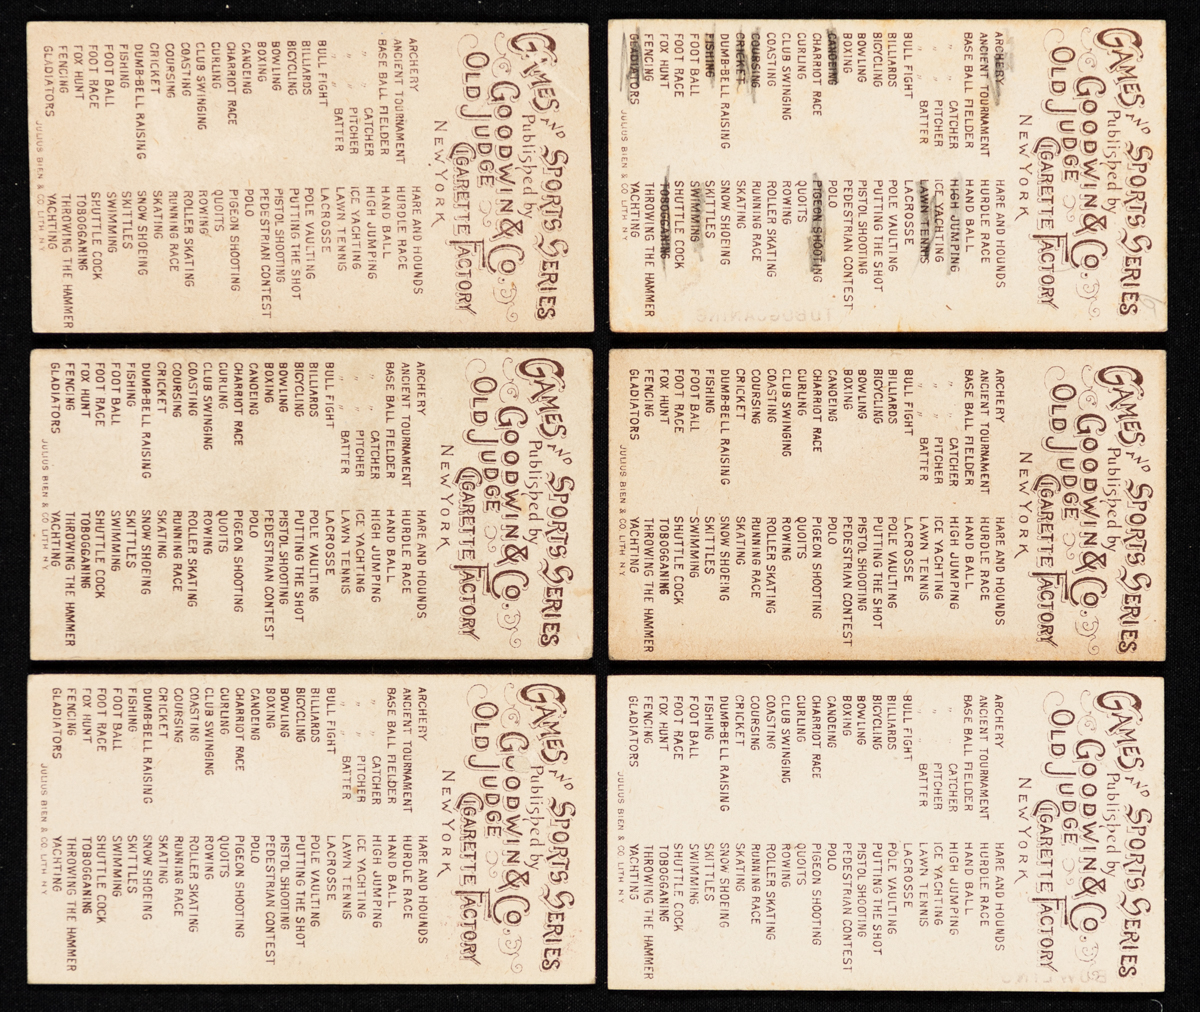 GAMES AND SPORTS SERIES
Published by
GOODWIN & CO.
OLD JUDGE CIGARETTE FACTORY
NEW YORK
ARCHERY
ANCIENT TOURNAMENT
BASE BALL FIELDER
" " CATCHER
" " PITCHER
" " BATTER
BULL FIGHT
BILLIARDS
BICYCLING
BOWLING
BOXING
CANOEING
CHARRIOT RACE
CURLING
CLUB SWINGING
COASTING
COURSING
CRICKET
DUMB-BELL RAISING
FISHING
FOOT BALL
FOOT RACE
FOX HUNT
FENCING
GLADIATORS
HARE AND HOUNDS
HURDLE RACE
HAND BALL
HIGH JUMPING
ICE YACHTING
LAWN TENNIS
LACROSSE
POLE VAULTING
PUTTING THE SHOT
PISTOL SHOOTING
PEDESTRIAN CONTEST
POLO
PIGEON SHOOTING
QUOITS
ROWING
ROLLER SKATING
RUNNING RACE
SKATING
SNOW SHOEING
SKITTLES
SWIMMING
SHUTTLE COCK
TOBOGGANING
THROWING THE HAMMER
YACHTING
JULIUS BIEN & CO. LITH. N.Y.
GAMES AND SPORTS SERIES
Published by
GOODWIN & CO.
OLD JUDGE CIGARETTE FACTORY
NEW YORK
ARCHERY
ANCIENT TOURNAMENT
BASE BALL FIELDER
" " CATCHER
" " PITCHER
" " BATTER
BULL FIGHT
BILLIARDS
BICYCLING
BOWLING
BOXING
CANOEING
CHARRIOT RACE
CURLING
CLUB SWINGING
COASTING
COURSING
CRICKET
DUMB-BELL RAISING
FISHING
FOOT BALL
FOOT RACE
FOX HUNT
FENCING
GLADIATORS
HARE AND HOUNDS
HURDLE RACE
HAND BALL
HIGH JUMPING
ICE YACHTING
LAWN TENNIS
LACROSSE
POLE VAULTING
PUTTING THE SHOT
PISTOL SHOOTING
PEDESTRIAN CONTEST
POLO
PIGEON SHOOTING
QUOITS
ROWING
ROLLER SKATING
RUNNING RACE
SKATING
SKITTLES
SWIMMING
SHUTTLE COCK
TOBOGGANING
THROWING THE HAMMER
YACHTING
JULIUS BIEN & CO. LITH. N.Y.
TOBOGGANING
GAMES AND SPORTS SERIES
Published by
GOODWIN & CO.
OLD JUDGE CIGARETTE FACTORY
NEW YORK
ARCHERY
ANCIENT TOURNAMENT
BASE BALL FIELDER
" " CATCHER
" " PITCHER
" " BATTER
BULL FIGHT
BILLIARDS
BICYCLING
BOWLING
BOXING
CANOEING
CHARRIOT RACE
CURLING
CLUB SWINGING
COASTING
COURSING
CRICKET
DUMB-BELL RAISING
FISHING
FOOT BALL
FOOT RACE
FOX HUNT
FENCING
GLADIATORS
HARE AND HOUNDS
HURDLE RACE
HAND BALL
HIGH JUMPING
ICE YACHTING
LAWN TENNIS
LACROSSE
POLE VAULTING
PUTTING THE SHOT
PISTOL SHOOTING
PEDESTRIAN CONTEST
POLO
PIGEON SHOOTING
QUOITS
ROWING
ROLLER SKATING
RUNNING RACE
SKATING
SNOW SHOEING
SKITTLES
SWIMMING
SHUTTLE COCK
TOBOGGANING
THROWING THE HAMMER
YACHTING
JULIUS BIEN & CO. LITH. N.Y.
GAMES AND SPORTS SERIES
Published by
GOODWIN & CO.
OLD JUDGE CIGARETTE FACTORY
NEW YORK
ARCHERY
ANCIENT TOURNAMENT
BASE BALL FIELDER
" " CATCHER
" " PITCHER
" " BATTER
BULL FIGHT
BILLIARDS
BICYCLING
BOWLING
BOXING
CANOEING
CHARRIOT RACE
CURLING
CLUB SWINGING
COASTING
COURSING
CRICKET
DUMB-BELL RAISING
FISHING
FOOT BALL
FOOT RACE
FOX HUNT
FENCING
GLADIATORS
HARE AND HOUNDS
HURDLE RACE
HAND BALL
HIGH JUMPING
ICE YACHTING
LAWN TENNIS
LACROSSE
POLE VAULTING
PUTTING THE SHOT
PISTOL SHOOTING
PEDESTRIAN CONTEST
POLO
PIGEON SHOOTING
QUOITS
ROWING
ROLLER SKATING
RUNNING RACE
SKATING
SNOW SHOEING
SKITTLES
SWIMMING
SHUTTLE COCK
TOBOGGANING
THROWING THE HAMMER
YACHTING
JULIUS BIEN & CO. LITH. N.Y.
GAMES AND SPORTS SERIES
Published by
GOODWIN & CO.
OLD JUDGE CIGARETTE FACTORY
NEW YORK
ARCHERY
ANCIENT TOURNAMENT
BASE BALL FIELDER
" " CATCHER
" " PITCHER
" " BATTER
BULL FIGHT
BILLIARDS
BICYCLING
BOWLING
BOXING
CANOEING
CHARRIOT RACE
CURLING
CLUB SWINGING
COASTING
COURSING
CRICKET
DUMB-BELL RAISING
FISHING
FOOT BALL
FOOT RACE
FOX HUNT
FENCING
GLADIATORS
HARE AND HOUNDS
HURDLE RACE
HAND BALL
HIGH JUMPING
ICE YACHTING
LAWN TENNIS
LACROSSE
POLE VAULTING
PUTTING THE SHOT
PISTOL SHOOTING
PEDESTRIAN CONTEST
POLO
PIGEON SHOOTING
QUOITS
ROWING
ROLLER SKATING
RUNNING RACE
SKATING
SNOW SHOEING
SKITTLES
SWIMMING
SHUTTLE COCK
TOBOGGANING
THROWING THE HAMMER
YACHTING
JULIUS BIEN & CO. LITH. N.Y.
GAMES AND SPORTS SERIES
Published by
GOODWIN & CO.
OLD JUDGE CIGARETTE FACTORY
NEW YORK
ARCHERY
ANCIENT TOURNAMENT
BASE BALL FIELDER
" " CATCHER
" " PITCHER
" " BATTER
BULL FIGHT
BILLIARDS
BICYCLING
BOWLING
BOXING
CANOEING
CHARRIOT RACE
CURLING
CLUB SWINGING
COASTING
COURSING
CRICKET
DUMB-BELL RAISING
FISHING
FOOT BALL
FOOT RACE
FOX HUNT
FENCING
GLADIATORS
HARE AND HOUNDS
HURDLE RACE
HAND BALL
HIGH JUMPING
ICE YACHTING
LAWN TENNIS
LACROSSE
POLE VAULTING
PUTTING THE SHOT
PISTOL SHOOTING
PEDESTRIAN CONTEST
POLO
PIGEON SHOOTING
QUOITS
ROWING
ROLLER SKATING
RUNNING RACE
SKATING
SNOW SHOEING
SKITTLES
SWIMMING
SHUTTLE COCK
TOBOGGANING
THROWING THE HAMMER
YACHTING
JULIUS BIEN & CO. LITH. N.Y.